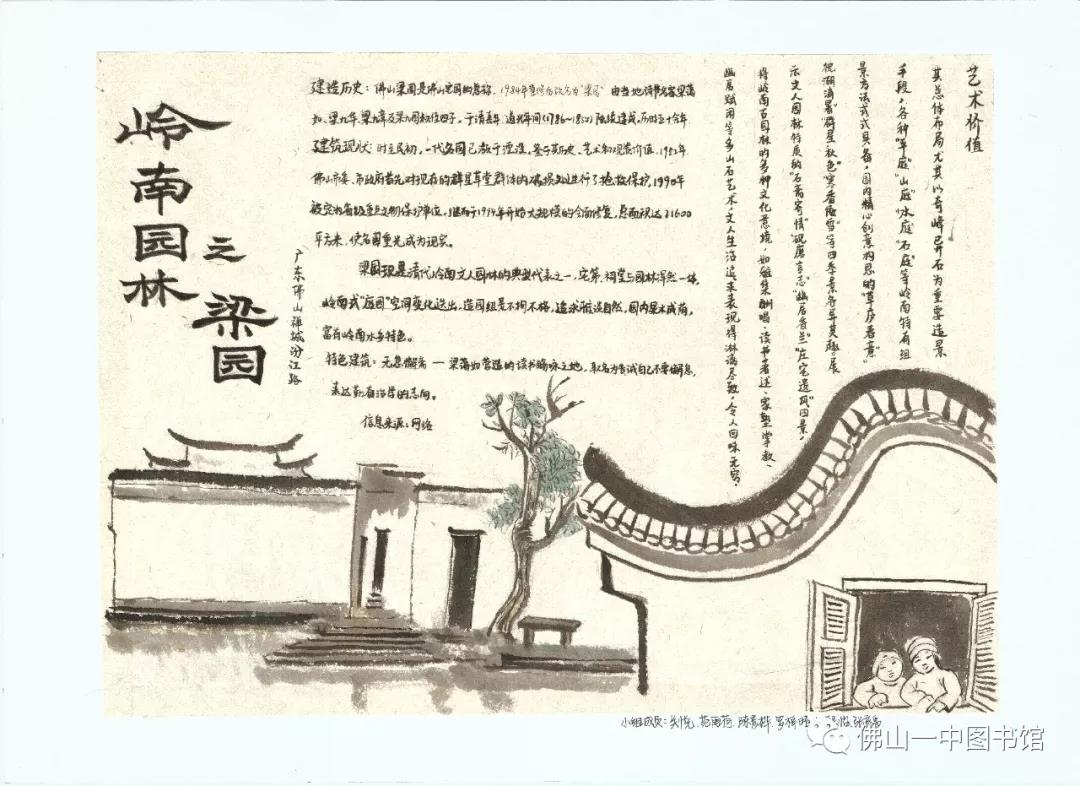 岭南园林
之
梁园
广东佛山禅城汾江路
建造历史：佛山梁园是佛山梁园的总称，1984年重修后改名为“梁园”由当地诗书名家梁蔼
如、梁九章、梁九华及梁九图叔侄四子，于清嘉庆、道光年间(1796-1850)陆续建成，历时四十余年
建筑现状：时至民初，一代名园已散于湮没，鉴于其历史、艺术和观赏价值，1982年
佛山市委、市政府首先对现存的群星草堂群体的残损处进行了抢救保护，1990年
被定为省级重点文物保护单位，继而于1994年开始大规模的全面修复，总面积达21600
平方米，使名园重光成为现实。
梁园现是清代岭南文人园林的典型代表之一，宅第、祠堂与园林浑然一体，
岭南式“庭园”空间变化迭出，造园组景不拘不格，追求雅淡自然，园内果木成荫，
富有岭南水乡特色。
特色建筑：无怠懈斋 — 梁蔼如营造的读书吟咏之地，取名为告诫自己不要懈怠，
表达勤奋治学的志向。
信息来源：网络
艺术价值
其总体布局尤其以奇峰巨石为重要造景
手段，各种“草庭”“山庭”“水庭”“石庭”等岭南特有组
景方法式式具备，园内精心创意构思的“草庐春意”
“枕湖消暑”“群星秋色”“寒香傲雪”等四季景各异其趣。展
示文人园林特质的“石斋寄情”“砚磨言志”“幽居香兰”“庄宅遗风”四景，
将岭南古园林的多种文化意境，如雅集酬唱、读书著述、家塾掌教、
幽居赋闲等多山石艺术，文人生活追求表现得淋漓尽致，令人回味无穷。
小组成员：
佛山一中图书馆